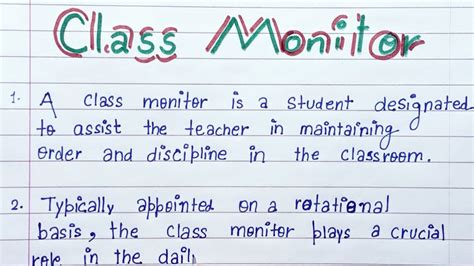 Class Monitor
1. A class monitor is a student designated
to assist the teacher in maintaining
order and discipline in the classroom.
2. Typically appointed on a rotational
basis, the class monitor plays a crucial
role in the dail